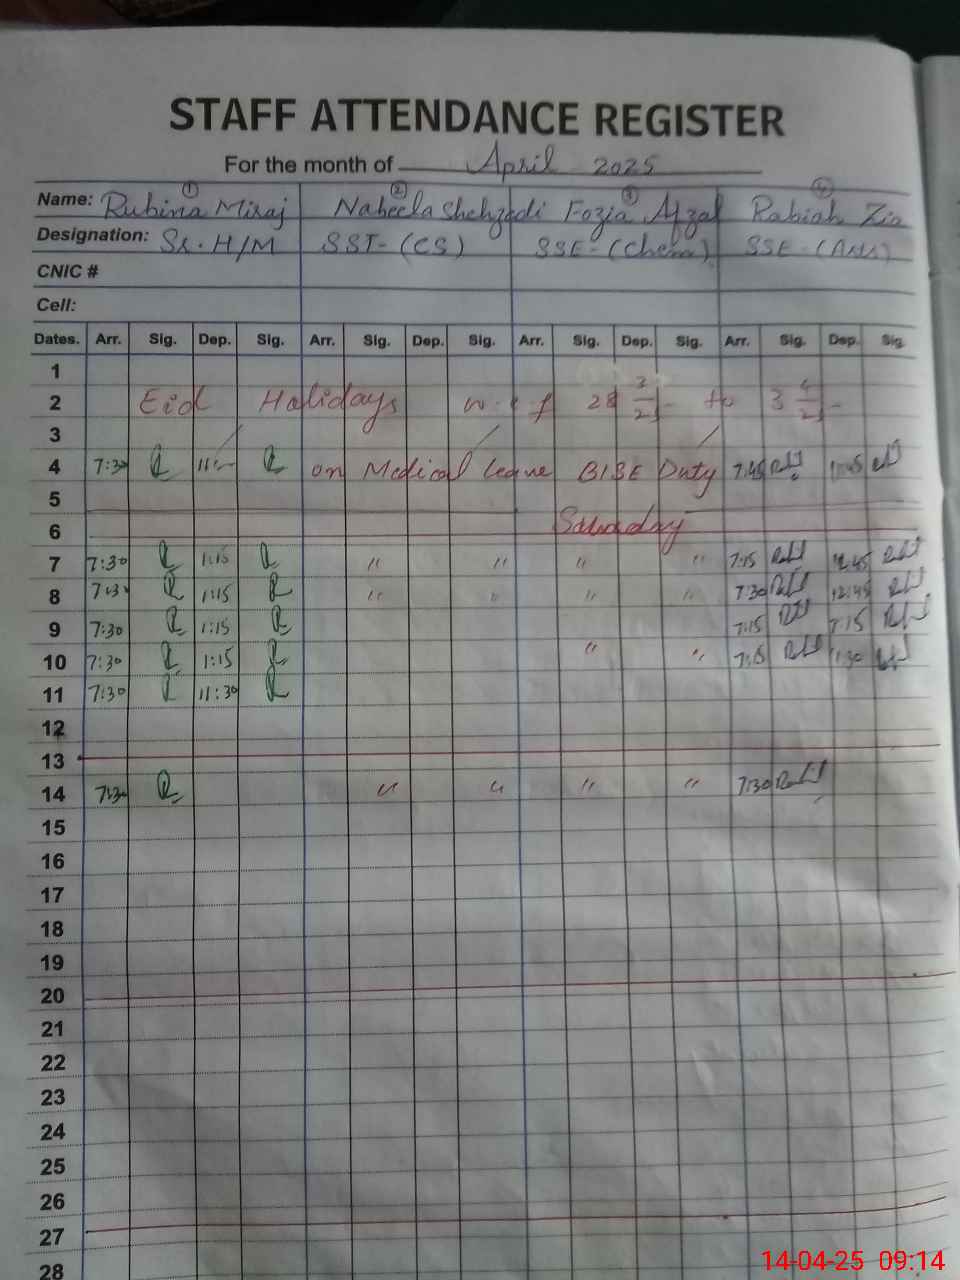 STAFF ATTENDANCE REGISTER
For the month of April 2025
① ② ③ ④
Name: Rubina Miraj Nabeela Shehzadi Fozia Afzal Rabiah Zia
Designation: Sr. H/M SST-(CS) SSE-(Chem) SSE-
CNIC #
Cell:
Dates. Arr. Sig. Dep. Sig. Arr. Sig. Dep. Sig. Arr. Sig. Dep. Sig. Arr. Sig. Dep. Sig.
1
2 Eid Halidays w.e.f 28 3/25 - to 3 4/25 -
3
4 7:30 on Medical leave BISE Duty 7:45
5
6
7 7:30 1:15 " " " " 7:15 12:45
8 7:30 1:15 " " " " 7:30 12:45
9 7:30 1:15 7:15 7:15
10 7:30 1:15 " " 7:15 1:30
11 7:30 11:30
12
13
14 7:30 " " " " 7:30
15
16
17
18
19
20
21
22
23
24
25
26
27
28
14-04-25 09:14